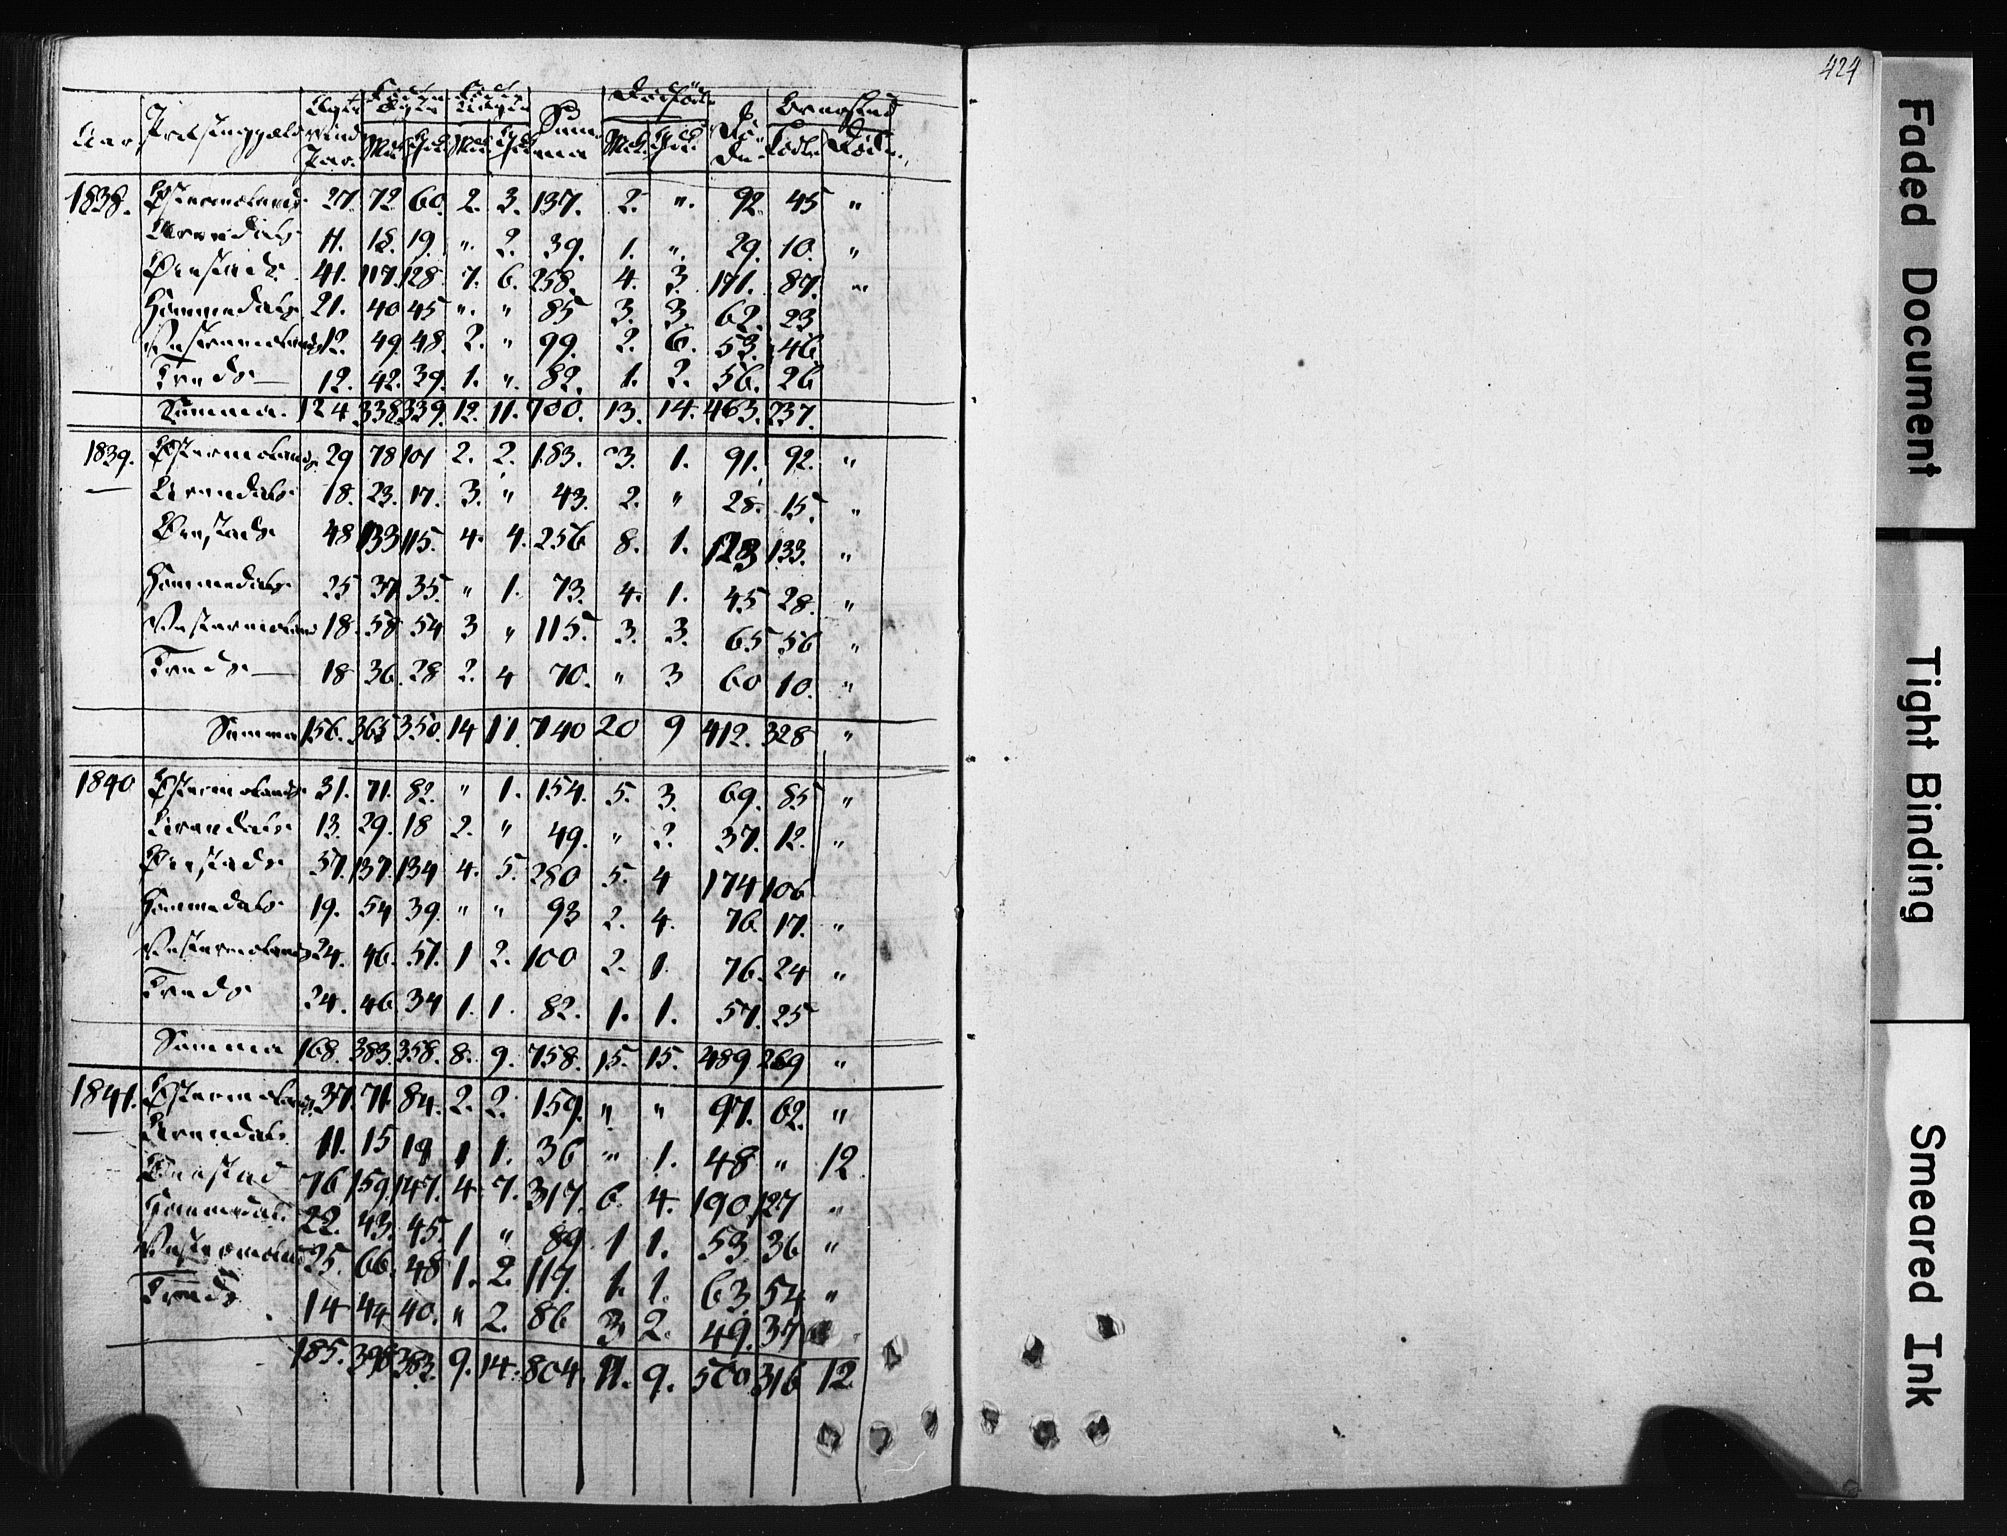 424
Aar Præstegjæld Ægte Viede Par Fødte Ægte Mk. Qvk. Fødte Uægte Mk. Qvk. Summa Dødfødte Mk. Qvk. Døde Overskud Fødte Døde
1838. Østermolands 27. 72 60. 2. 3. 137. 2. ". 92 45 "
Arendals 11. 18. 19. ". 2. 39. 1. ". 29. 10. "
Øiestads 41. 117. 128 7. 6. 258. 4. 3. 171. 87. "
Hommedals 21. 40 45 ". " 85 3. 3. 62. 23
Vestermolands 12. 49 48. 2. " 99. 2. 6. 53. 46
Froeds 12. 42. 39. 1. ". 82. 1. 2. 56. 26
Summa. 124 338. 339. 12. 11. 700. 13. 14. 463. 237.
1839. Østermolands 29 78 101 2. 2. 183. 3. 1. 91. 92. "
Arendals 18. 23. 17. 3. " 43. 2. " 28. 15. "
Øiestads 48 133 115. 4. 4. 256 8. 1. 123 133. "
Hommedals 25 37. 35. " 1. 73. 4. 1. 45 28. "
Vestermolands 18. 58 54 3 " 115. 3. 3. 65 56 "
Froeds 18 36. 28 2. 4 70. " 3 60 10. "
Summa 156. 365 350. 14 11. 740 20 9 412. 328 "
1840 Østermolands 31. 71. 82. " 1. 154. 5. 3. 69. 85 "
Arendals 13. 29. 18 2. " 49. " 2. 37. 12. "
Øiestads 57. 137. 134 4. 5. 280 5. 4 174 106
Hommedals 19. 54 39. " " 93 2. 4. 76. 17. "
Vestermolands 24. 46. 51. 1 2. 100 2. 1. 76. 24 "
Froeds 24. 46. 34 1. 1. 82. 1. 1. 57. 25
Summa 168. 383. 358. 8. 9. 758. 15. 15. 489 269 "
1841. Østermolands 37. 71. 84. 2. 2. 159. " " 97. 62. "
Arendals 11. 15 19 1 1. 36 " 1. 48 " 12
Øiestad 76 159. 147. 4. 7. 317. 6. 4. 190. 127 "
Hommedals 22. 43. 45. 1 " 89 1 1. 53 36 "
Vestermolands 25. 66. 48 1. 2. 117. 1. 1. 63. 54 "
Froeds 14 44 40. " 2. 86 3 2. 49. 37
185. 398 383. 9. 14. 804. 11. 9. 500. 316 12
Faded Document
Tight Binding
Smeared Ink